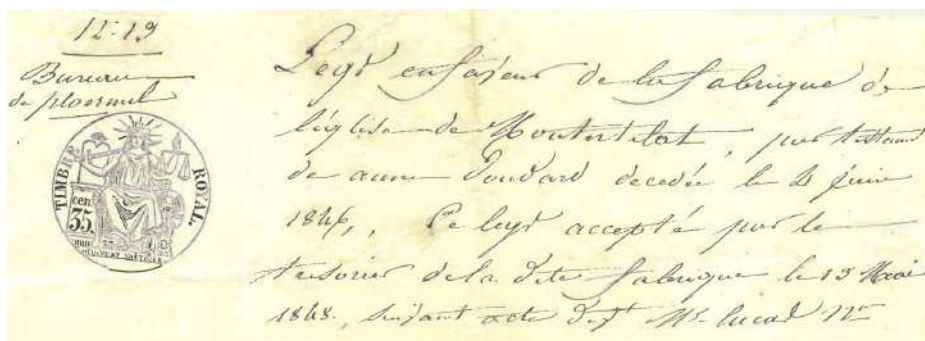 12-19
Bureau
de ploermel
TIMBRE ROYAL.
cen
35.
Legs en faveur de la fabrique de
l'église de Montertelot, par testam
de anne Doudard decedée le 4 juin
1846,. Ce legs accepté par le
tresorier de la dite fabrique le 13 Mai
1848, suivant acte dept Me Lucas Nre